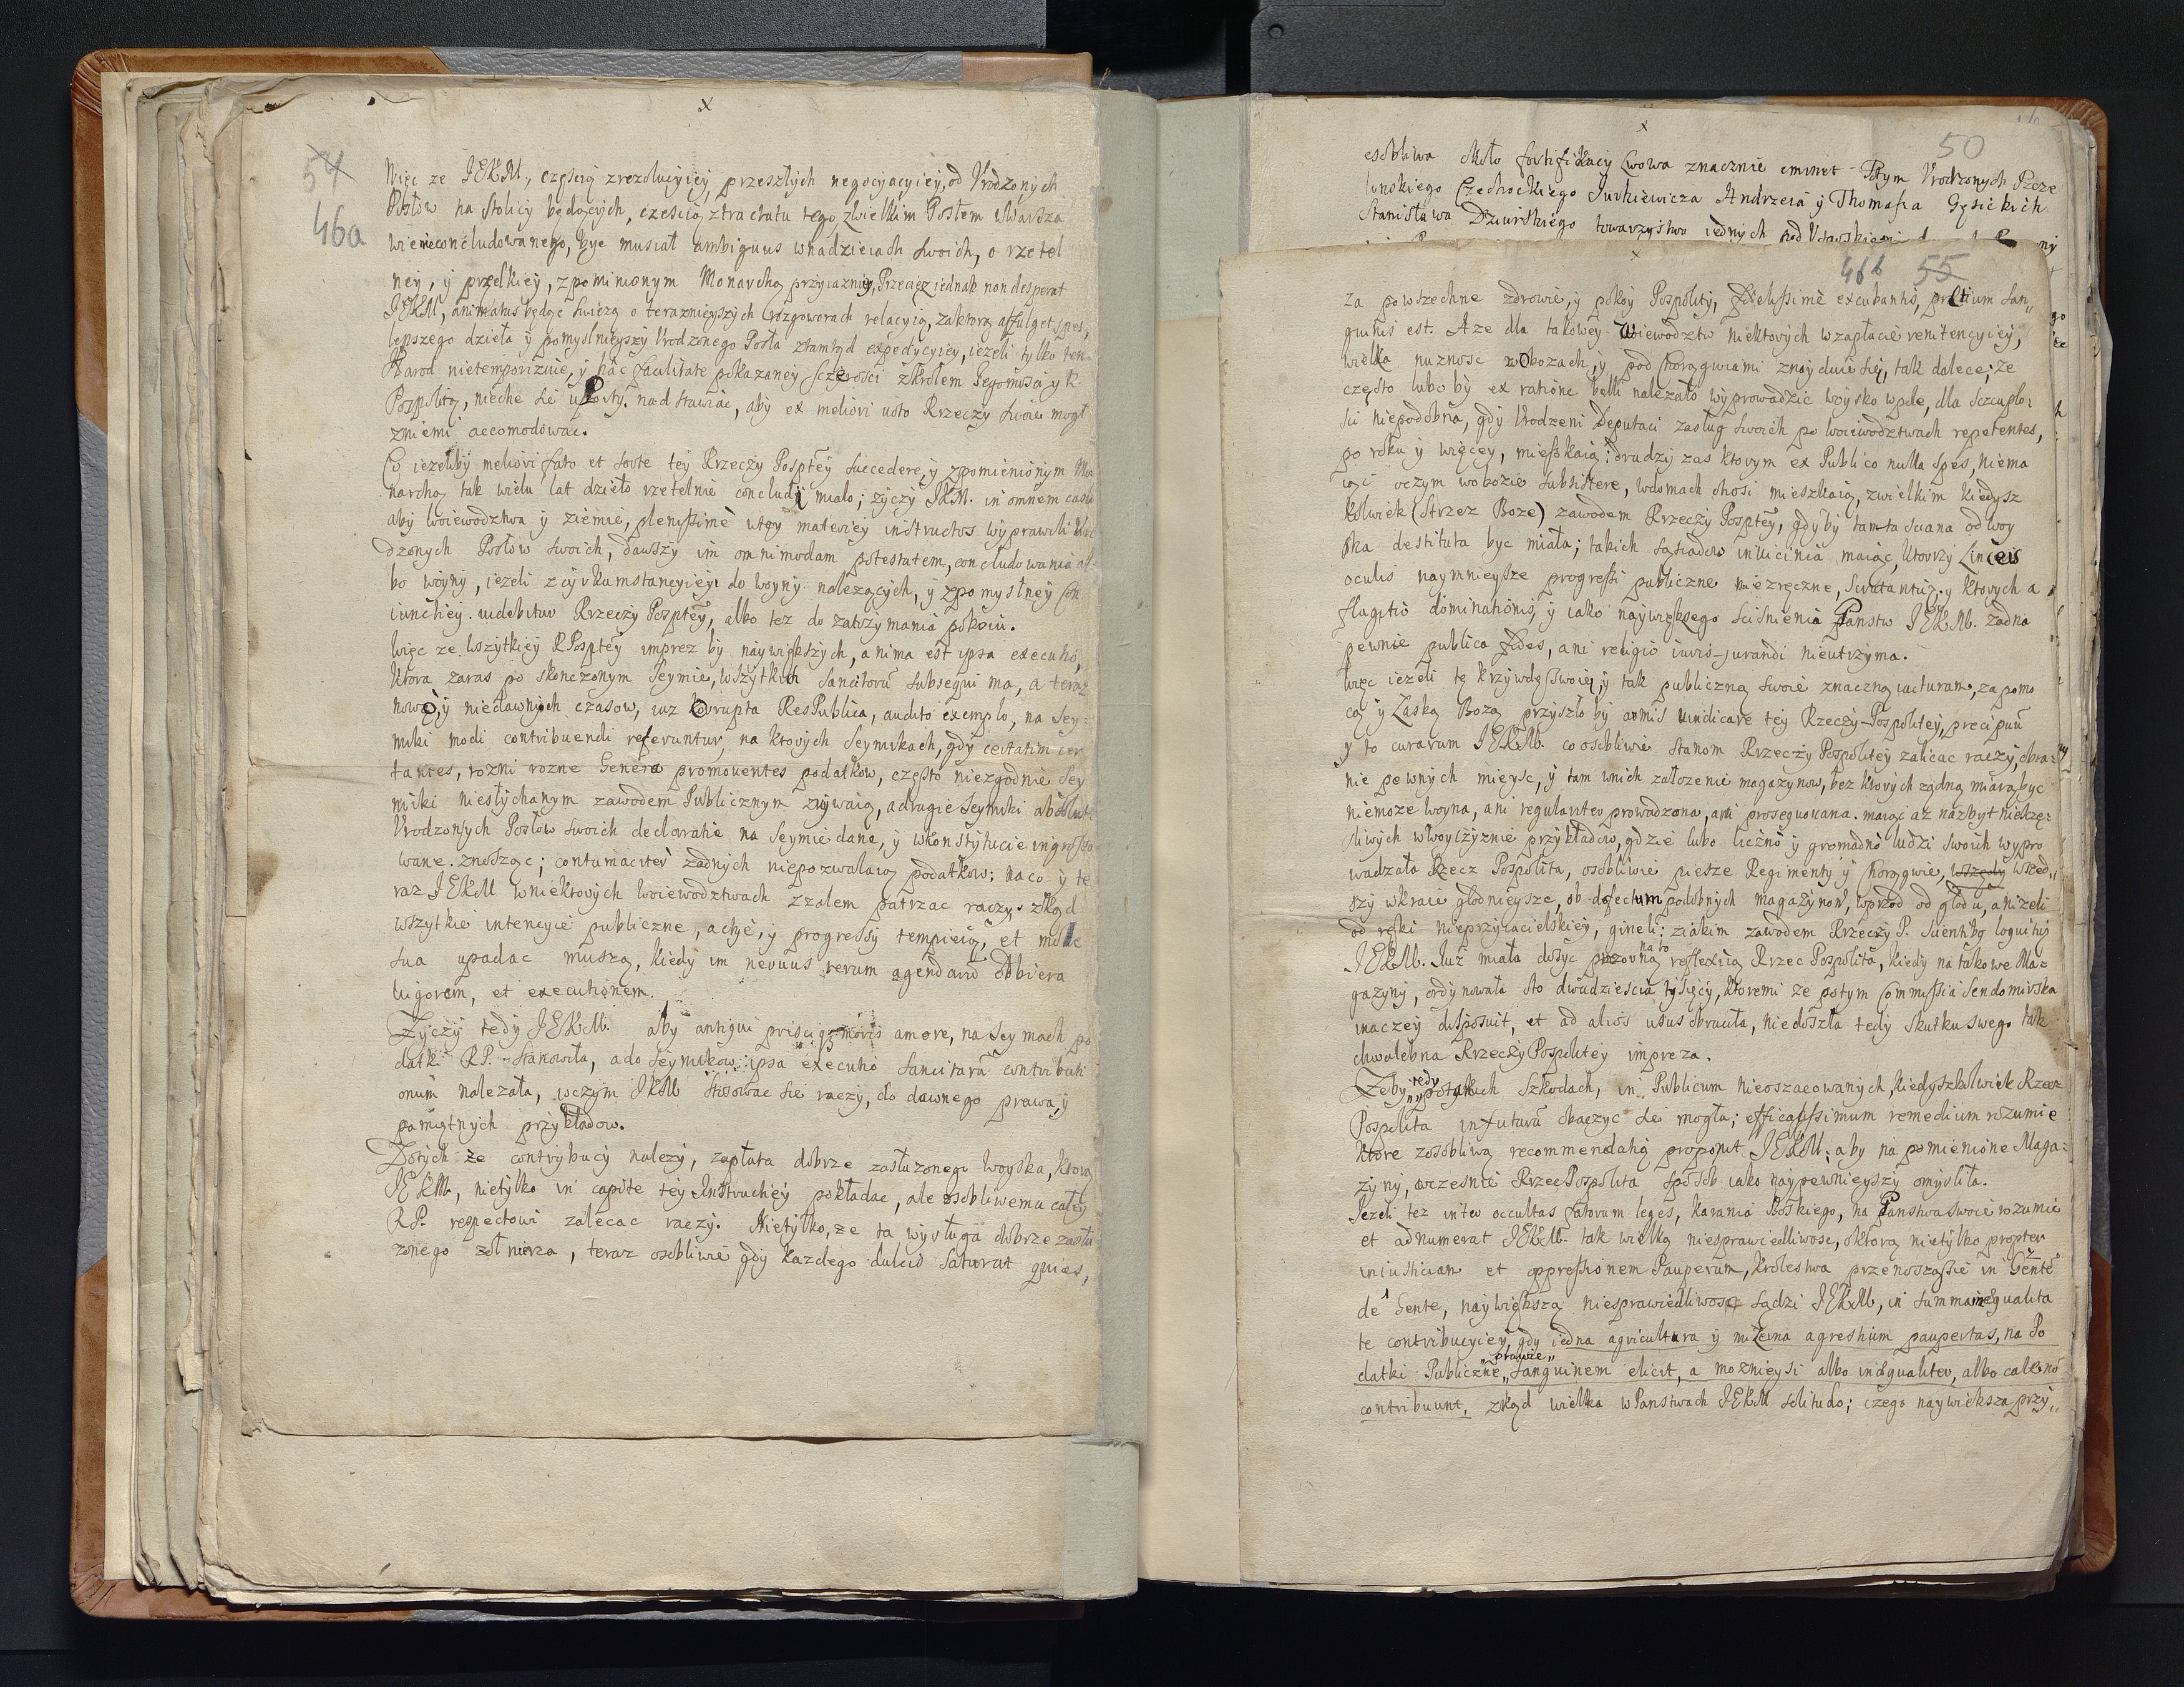 x
54
46a
Więc ze JEKM, częscią zrezolucyiey przeszłych negocyacyiey, od Vrodzonych
Posłow na Stolicy będących, czescią ztractatu tego zwielkim Posłem wWarsza
wie nieconcludowanego, byc musiał ambiguus wnadzieiach swoich, o rzetel
ney, y prędkiey, zpomienionym Monarchą przyiazniey, Przeacz iednak non desperat
JEKM, animatus będąc swiezą o teraznieyszych rozgoworach relacyią, zaktorą affulget spes,
lepszego dzieła y pomyslnieyszy Vrodzonego Posła ztamtąd expedycyiey, iezeli tylko ten
Narod nietemporizuie, y hac facilitate pokazaney sczerosci zKrolem Jegomoscią y R.
Pospolitą, nieche sie uPorty nadstawiac, aby ex meliori uoto Rzeczy swoie mogł
zniemi accomodowac.
Co iezeliby meliori fato et sorte tey Rzeczy Posptey succedere, y zpomienionym Mo
narchą tak wielu lat dzieło rzetelnie concludi miało; zyczy JKM. in omnem casum
aby woiewodztwa y ziemie, plenissimè utey materiey instructos wyprawili Vro
dzonych Posłow swoich, dawszy im omnimodam potestatem, concludowania al
bo woyny, iezeli zcyrkumstancyiey do woyny nalezących, y zpomyslney Con
iunctiey. uidebitur Rzeczy Posptey, albo tez do zatrzymania pokoiu.
Więc ze wszytkiey RPosptey imprez by naywiększych, anima est ipsa executio,
ktora zaras po skonczonym Seymie, wszytkich Sancitorũ subsequi ma, a teraz
nowo, y niedawnych czasow, iuz Corrupta ResPublica, audito exemplo, na Sey-
miki modi contribuendi referuntur, na ktorych Seymikach, gdy certatim cer
tantes, rozni rozne Genera promouentes podatkow, często niezgodnie Sey
miki niesłychanym zawodem Publicznym zrywaią, adrugie Seymiki absolute
Vrodzonych Posłow swoich declaratie na Seymie dane, y wkonstytucie ingrosso
wane. znosząc; contumaciter zadnych niepozwalaią podatkow: naco y te
raz JEKM wniektorych woiewodztwach zzalem patrzac raczy. zkąd
wszytkie intencyie publiczne, actye, y progressy tempieią, et mole
sua upadac muszą, kiedy im neruus rerum agendarũ odbiera
uigorem, et executionem.
Zyczy tedy JEKM. aby antiqui priscique moris amore, na Seymach po
datki RP. stanowiła, ado Seymikow ipsa executio Sancitarũ contributi
onum nalezała, wczym JKM stosowac sie raczy, do dawnego prawa, y
pamiętnych przykładow.
Dotych ze contrybucy nalezy, zapłata dobrze zasłuzonego woyska, ktorą
JEKM, nietylko in capite tey Instructiey pokładac, ale osobliwemu całey
RP. respectowi zalecac raczy. Nietylko, ze ta wysługa dobrze zasłu
zonego zołnierza, teraz osobliwie gdy kazdego dulcis saturat quies,
x
50
osobliwa około fortifikacy Lwowa znacznie eminet. Potym Vrodzonych Pcze
linskiego Czechockiego Jurkiewicza Andrzeia y Thomasza Gęsickich
Stanisława Dziurskiego towarzystwo iednych pod
x
46b 55
za powszechne zdrowie, y pokoy Pospolity, fidelissimè excubantis, pretium san„
guinis est. Aze dla takowey Woiewodztw niektorych wzapłacie renitencyiey,
wielka nuznosc wobozach, y pod Chorągwiami znayduie się, tak dalece, ze
często luboby ex ratione belli nalezało wyprowadzic woysko wpole, dla sczupło-
sci niepodobna, gdy Vrodzeni Deputaci zasług swoich po woiewodztwach repetentes,
po roku y więcey, mieszkaią: drudzy zas ktorym ex Publico nulla spes, niema
iąc oczym wobozie subsistere, wdomach chosi mieszkaią, zwielkim kiedysz
kolwiek (Strzez Boze) zawodem Rzeczy Posptey, gdyby tamta sciana odwoy
ska destituta byc miała; takich sąsiadow inuicinia maiąc, ktorzy Linceis
oculis naymnieysze progressi publiczne niezręczne, scrutantur, y ktorych a
flagitio dominationis, y iako naywiększego scisnienia Panstw JEKM. zadna
pewnie publica fides, ani religio iuris-jurandi nieutrzyma.
Więc iezeli tę krzywdę swoię, y tak publiczną swoię znaczną iacturam, zapomo
cą y Łaską Bozą przyszłoby armis uindicare tey Rzeczy-Pospolitey, precipuũ
y to curarum JEKM. coosobliwie stanom Rzeczy Pospolitey zalicac raczy, obra-
nie pewnych mieysc, y tam wnich załozenie magazynow, bez ktorych ządną miarą byc
niemoze woyna, ani regulariter prowadzona, ani prosequowana. maiąc az nazbyt nieszczę-
sliwych wwoyczyznie przykładow, gdzie lubo liczno y gromadno ludzi swoich wypro
wadzała Rzecz Pospolita, osobliwie piesze Regimenty y Chorągwie, wszedy wszed„
szy wkraie głodnieysze, ob defectum podobnych magazynow, wprzod od głodu, anizeli
od ręki nieprzyiacielskiey, gineli: ziakim zawodem Rzeczy P. Scientibg loquitur
JEKM. Juz miała dosyc przezorną na to reflexią Rzecz Pospolita, kiedy na takowe Ma-
gazyny, ordynowała sto dwadziescia tysięcy, ktoremi ze potym Commissia Sendomirska
inaczey disposuit, et ad alios usus obruciła, niedoszła tedy skutku swego tak
chwalebna Rzeczy Pospolitey impreza.
Zeby tedy potakich szkodach, in Publicum nieoszacowanych, kiedyszkolwiek Rzecz
Pospolita infuturũ obaczyc sie mogła; efficacissimum remedium rozumie
ktore zosobliwą recommendatią proponit JEKM; aby na pomienione Maga-
zyny, wczesnie RzeczPospolita sposob iako naypewnieyszy omysliła.
Jezeli tez inter occultas fatorum leges, karania Boskiego, na Panstwa swoie rozumie
et adnumerat JEKM. tak wielką niesprawiedliwosc, oktorą nietylko propter
iniustitiam et oppressionem Pauperum, krolestwa przenoszasie in Gentẽ
de Gente, naywiększą niesprawiedliwosc sądzi JEKM, in summa inæqualita
te contribucyiey, gdy iedna agricultura y mizerna agrestium paupertas, na Po
datki Publiczne „prawie„ sanguinem elicit, a moznieysi albo inæqualiter, albo całe nò
contribuunt, zkąd wielka wPanstwach JEKM solitudo; czego naywiększa przy„